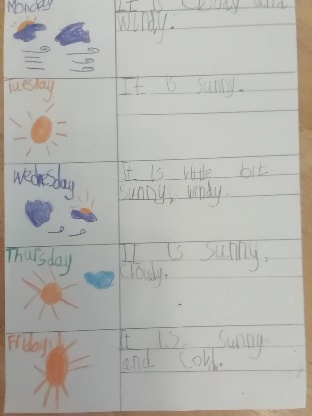 Monday
It is cloudy and
windy.
Tuesday
It is sunny.
Wednesday
It is little bit
sunny, windy.
Thursday
It is sunny,
cloudy.
Friday
It is sunny
and cold.